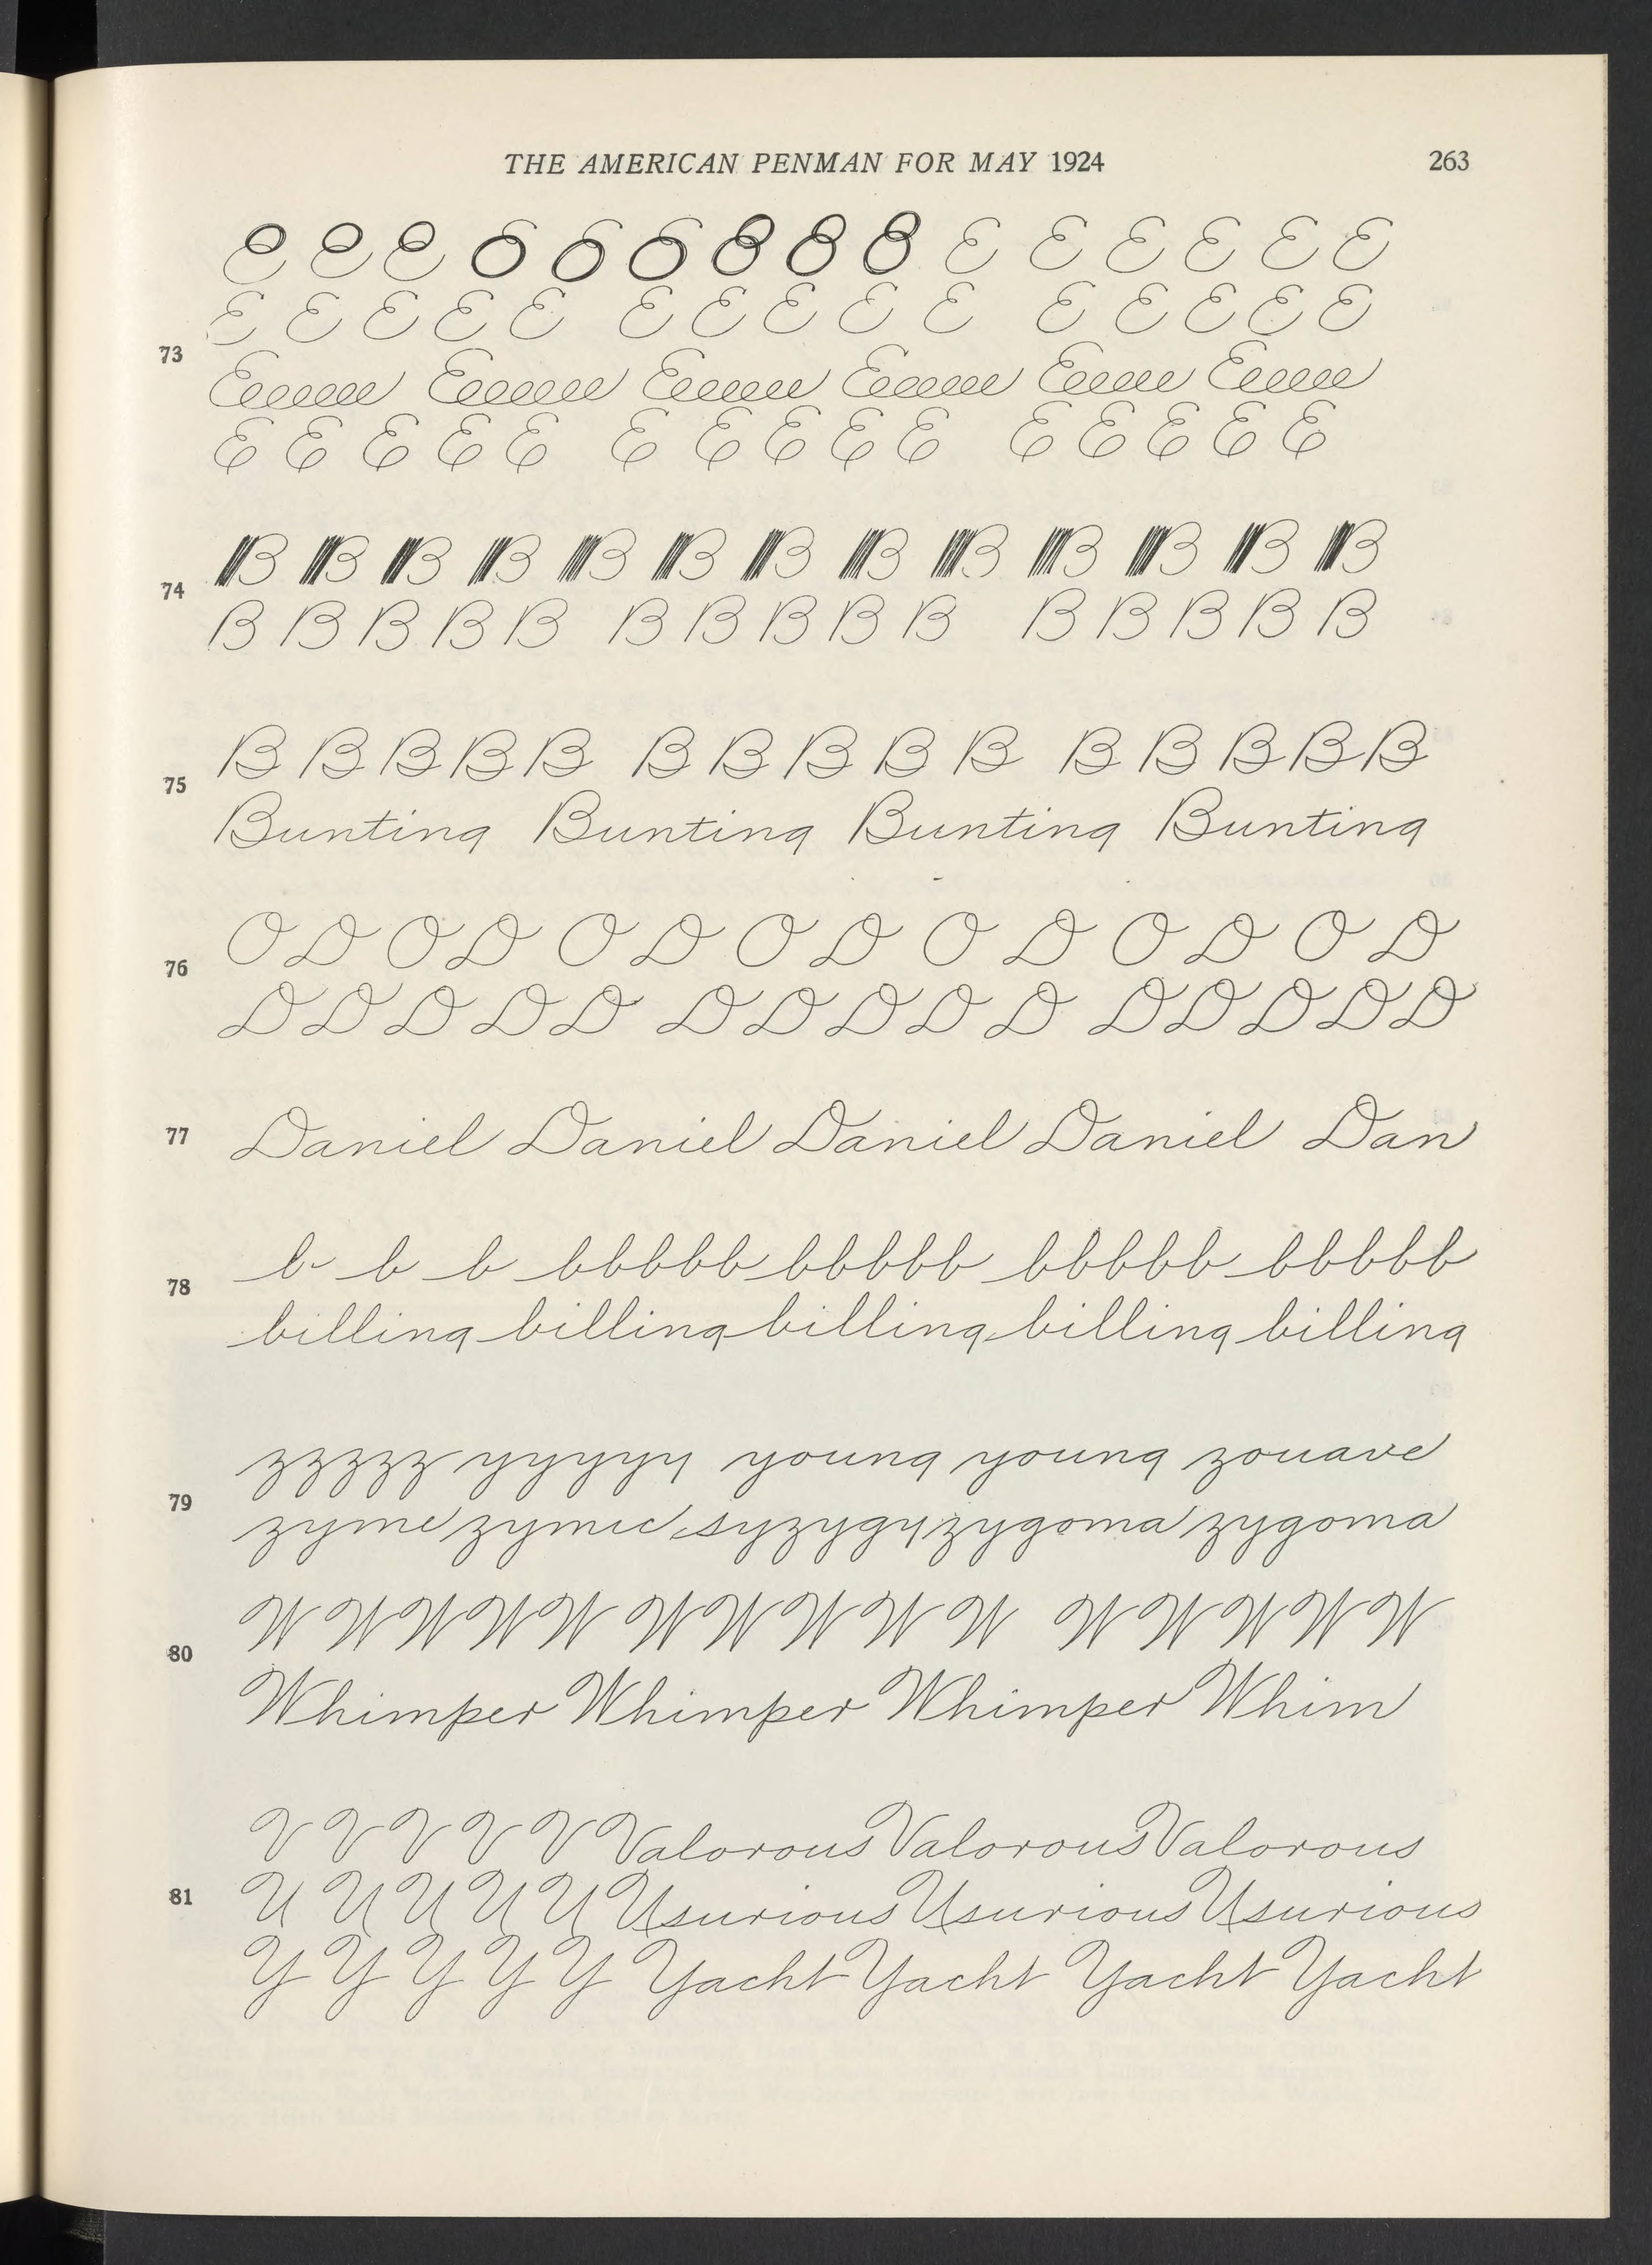 THE AMERICAN PENMAN FOR MAY 1924 263
E E E E E E
E E E E E E E E E E E E E E E
73
Eeeeee Eeeeee Eeeeee Eeeeee Eeeee Eeeee
E E E E E E E E E E E E E E E
B B B B B B B B B B B B B
74
B B B B B B B B B B B B B B B
B B B B B B B B B B B B B B B
75
Bunting Bunting Bunting Bunting
O D O D O D O D O D O D O D
76
D D D D D D D D D D D D D D D
77 Daniel Daniel Daniel Daniel Dan
b b b bbbbb bbbbb bbbbb bbbbb
78
billing billing billing billing billing
zzzzz yyyyy young young zouave
79
zyme zymic syzygy zygoma zygoma
W W W W W W W W W W W W W W W
80
Whimper Whimper Whimper Whim
V V V V V Valorous Valorous Valorous
81 U U U U U Usurious Usurious Usurious
Y Y Y Y Y Yacht Yacht Yacht Yacht